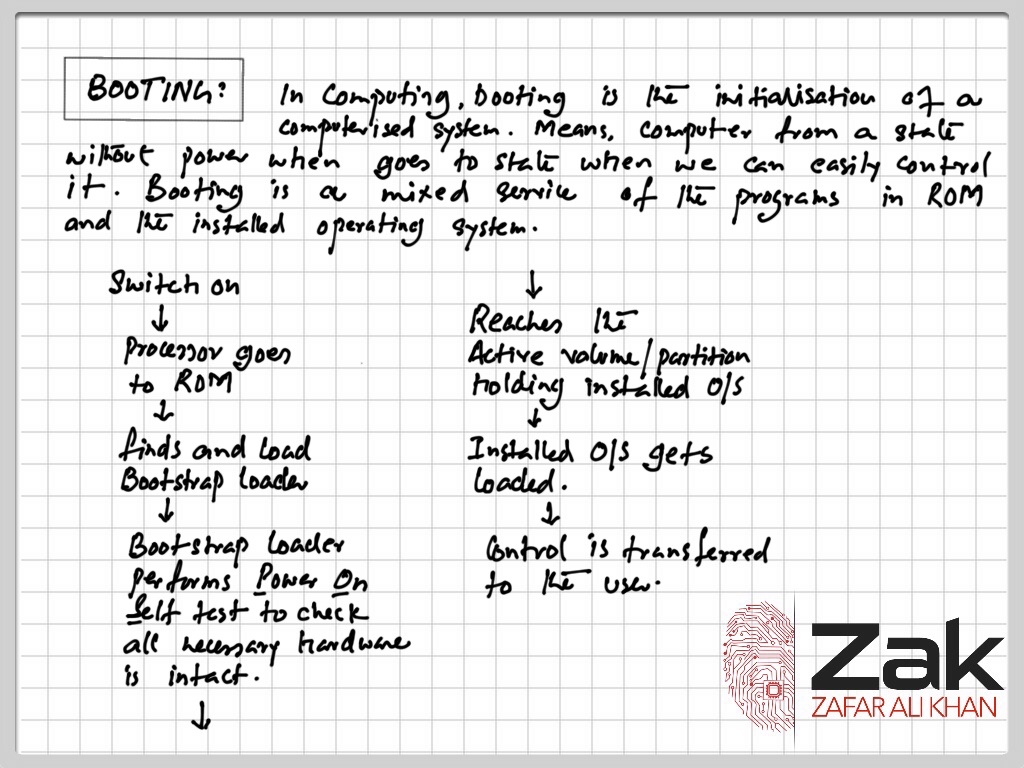 BOOTING: In computing, booting is the initialisation of a
computerised system. Means, computer from a state
without power when goes to state when we can easily control
it. Booting is a mixed service of the programs in ROM
and the installed operating system.
Switch on
↓
Processor goes
to ROM
↓
finds and load
Bootstrap loader
↓
Bootstrap loader
performs Power On
Self test to check
all necessary hardware
is intact.
↓
↓
Reaches the
Active volume/partition
holding installed O/S
↓
Installed O/S gets
loaded.
↓
Control is transferred
to the user.
Zak
ZAFAR ALI KHAN